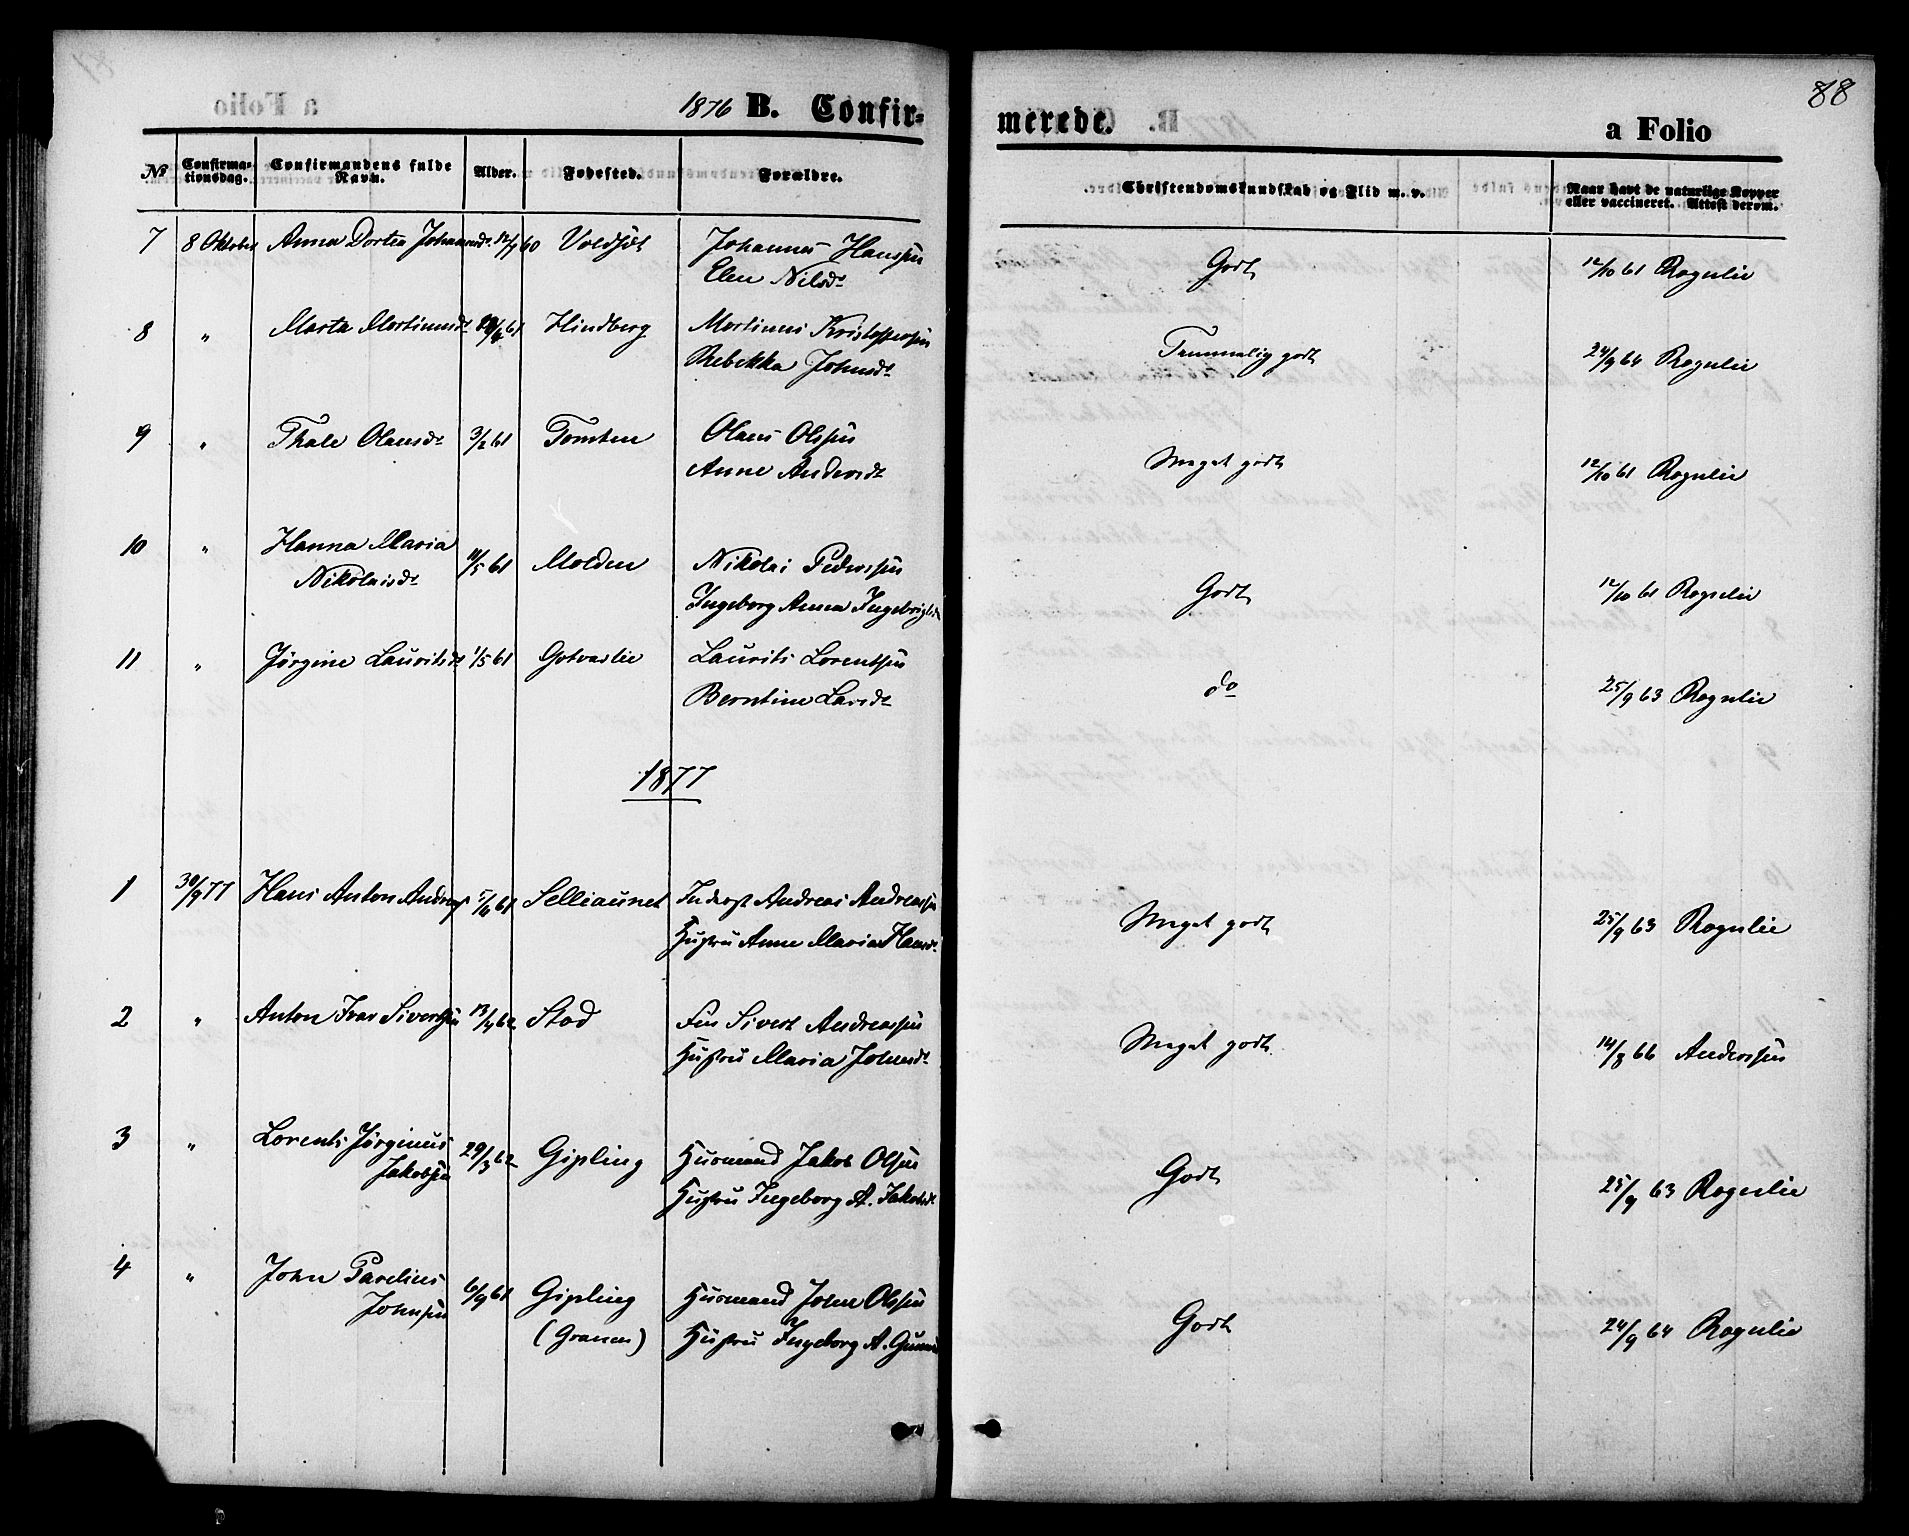 1876 B. Confir=
merede.
a Folio
88
No
Confirma-
tionsdag.
Confirmandens fulde
Navn.
Alder.
Fødested.
Forældre.
Christendomskundskab og Flid m. v.
Naar havt de naturlige Kopper
eller vaccineret. Attest derom.
7 8 Oktober Anna Dortea Johannesdt 12/7 60 Johannes Hanssen
Elen Nilsdt
Godt 12/10 61 Rognlie
8 " Marta Martinusdt Hindberg Martinus Kristoffersen
Rebekka Johnsdt
Temmelig godt 24/9 64 Rognlie
9 " Thale Olausdt 3/2 61 Tomten Olaus Olssen
Anne Andersdt
Meget godt 12/10 61 Rognlie
10 " Hanna Maria
Nikolaisdt 11/5 61 Molden Nikolai Pederssen
Ingeborg Anna Ingebrigtsdt
Godt 12/10 61 Rognlie
11 " Jørgine Lauritsdt 1/5 61 Gotvaslie Laurits Lorentsen
Berntine Larsdt
do 25/9 63 Rognlie
1877
1 30/9 77 Hans Anton Andreas 5/4 61 Selliaunet Inderst Andreas Andreassen
Hustru Anne Maria Hansdt
Meget godt 25/9 63 Rognlie
2 " Anton Ivar Sivertsen 13/4 62 Stod Sivert Andreassen
Hustru Maria Johnsdt
Meget godt 14/8 66 Anderssen
3 " Lorents Jørginus
Jakobsen 29/3 62 Gipling Husmand Jakob Olsen
Hustru Ingeborg A. Jakobsdt
Godt 25/9 63 Rognlie
4 " John Pavelius
Johnsen 6/9 61 Gipling
(Granen)
Husmand John Olssen
Hustru Ingeborg A.
Godt 24/9 64 Rognlie